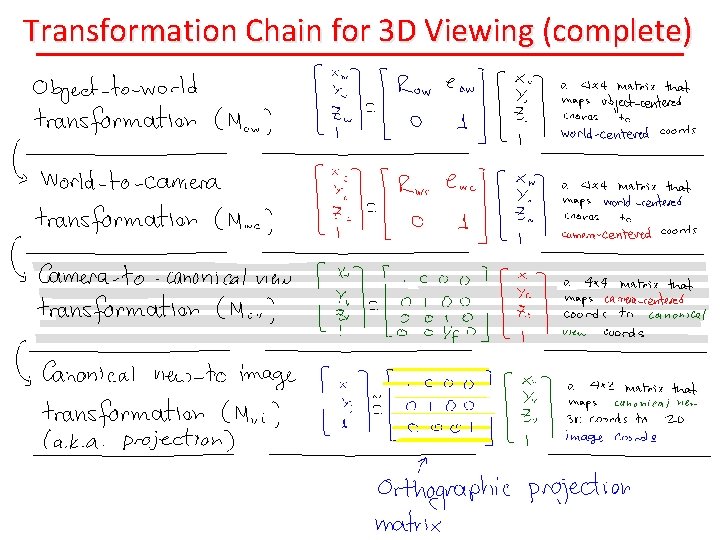 Transformation Chain for 3D Viewing (complete)
Object-to-world
transformation (Mow)
[xw yw zw 1] = [Row eow 0 1] [xo yo zo 1]
a 4x4 matrix that
maps object-centered
coords to
world-centered coords
World-to-camera
transformation (Mwc)
[xc yc zc 1] = [Rwc ewc 0 1] [xw yw zw 1]
a 4x4 matrix that
maps world-centered
coords to
camera-centered coords
Camera-to-canonical view
transformation (Mcv)
a 4x4 matrix that
maps camera-centered
coords to canonical
view coords
Canonical view-to image
transformation (Mvi)
(a.k.a. projection)
a 4x2 matrix that
maps canonical
3D coords to 2D
image coords
Orthographic projection
matrix